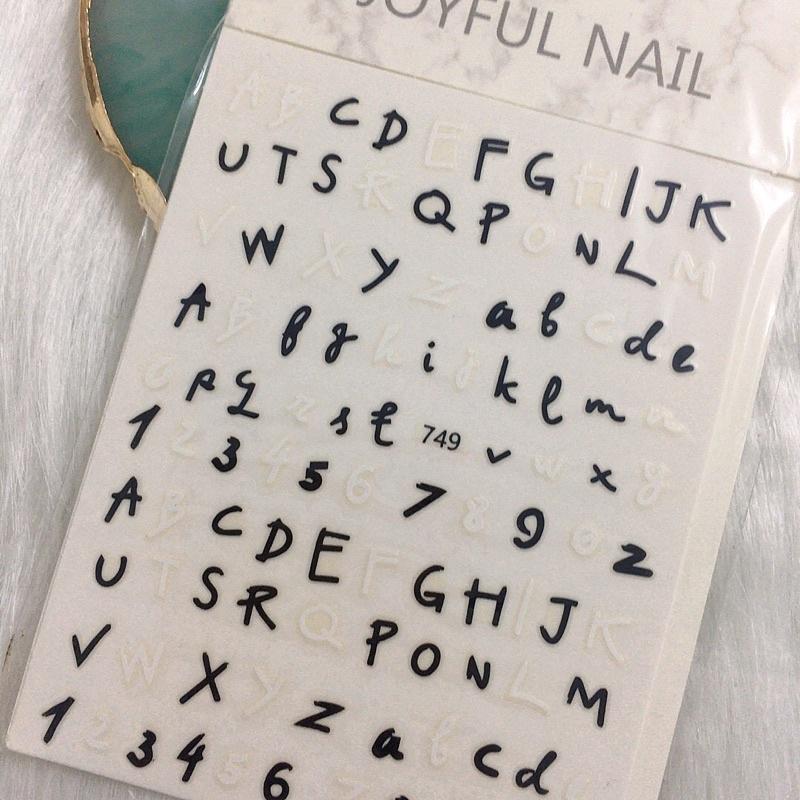 JOYFUL NAIL
A B C D E F G H I J K
U T S R Q P O N L M
V W X Y Z a b c d e
A B f g h i j k l m n
o p q r s t 749 v w x y
1 2 3 4 5 6 7 8 9 0 z
A B C D E F G H I J K
U T S R Q P O N L M
V W X Y Z a b c d
1 2 3 4 5 6 7